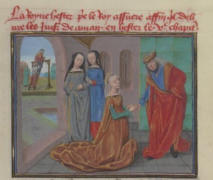 La royne hester pe le roy assuere affin q̃ deli
ure les juifz de aman en hester le v chapit